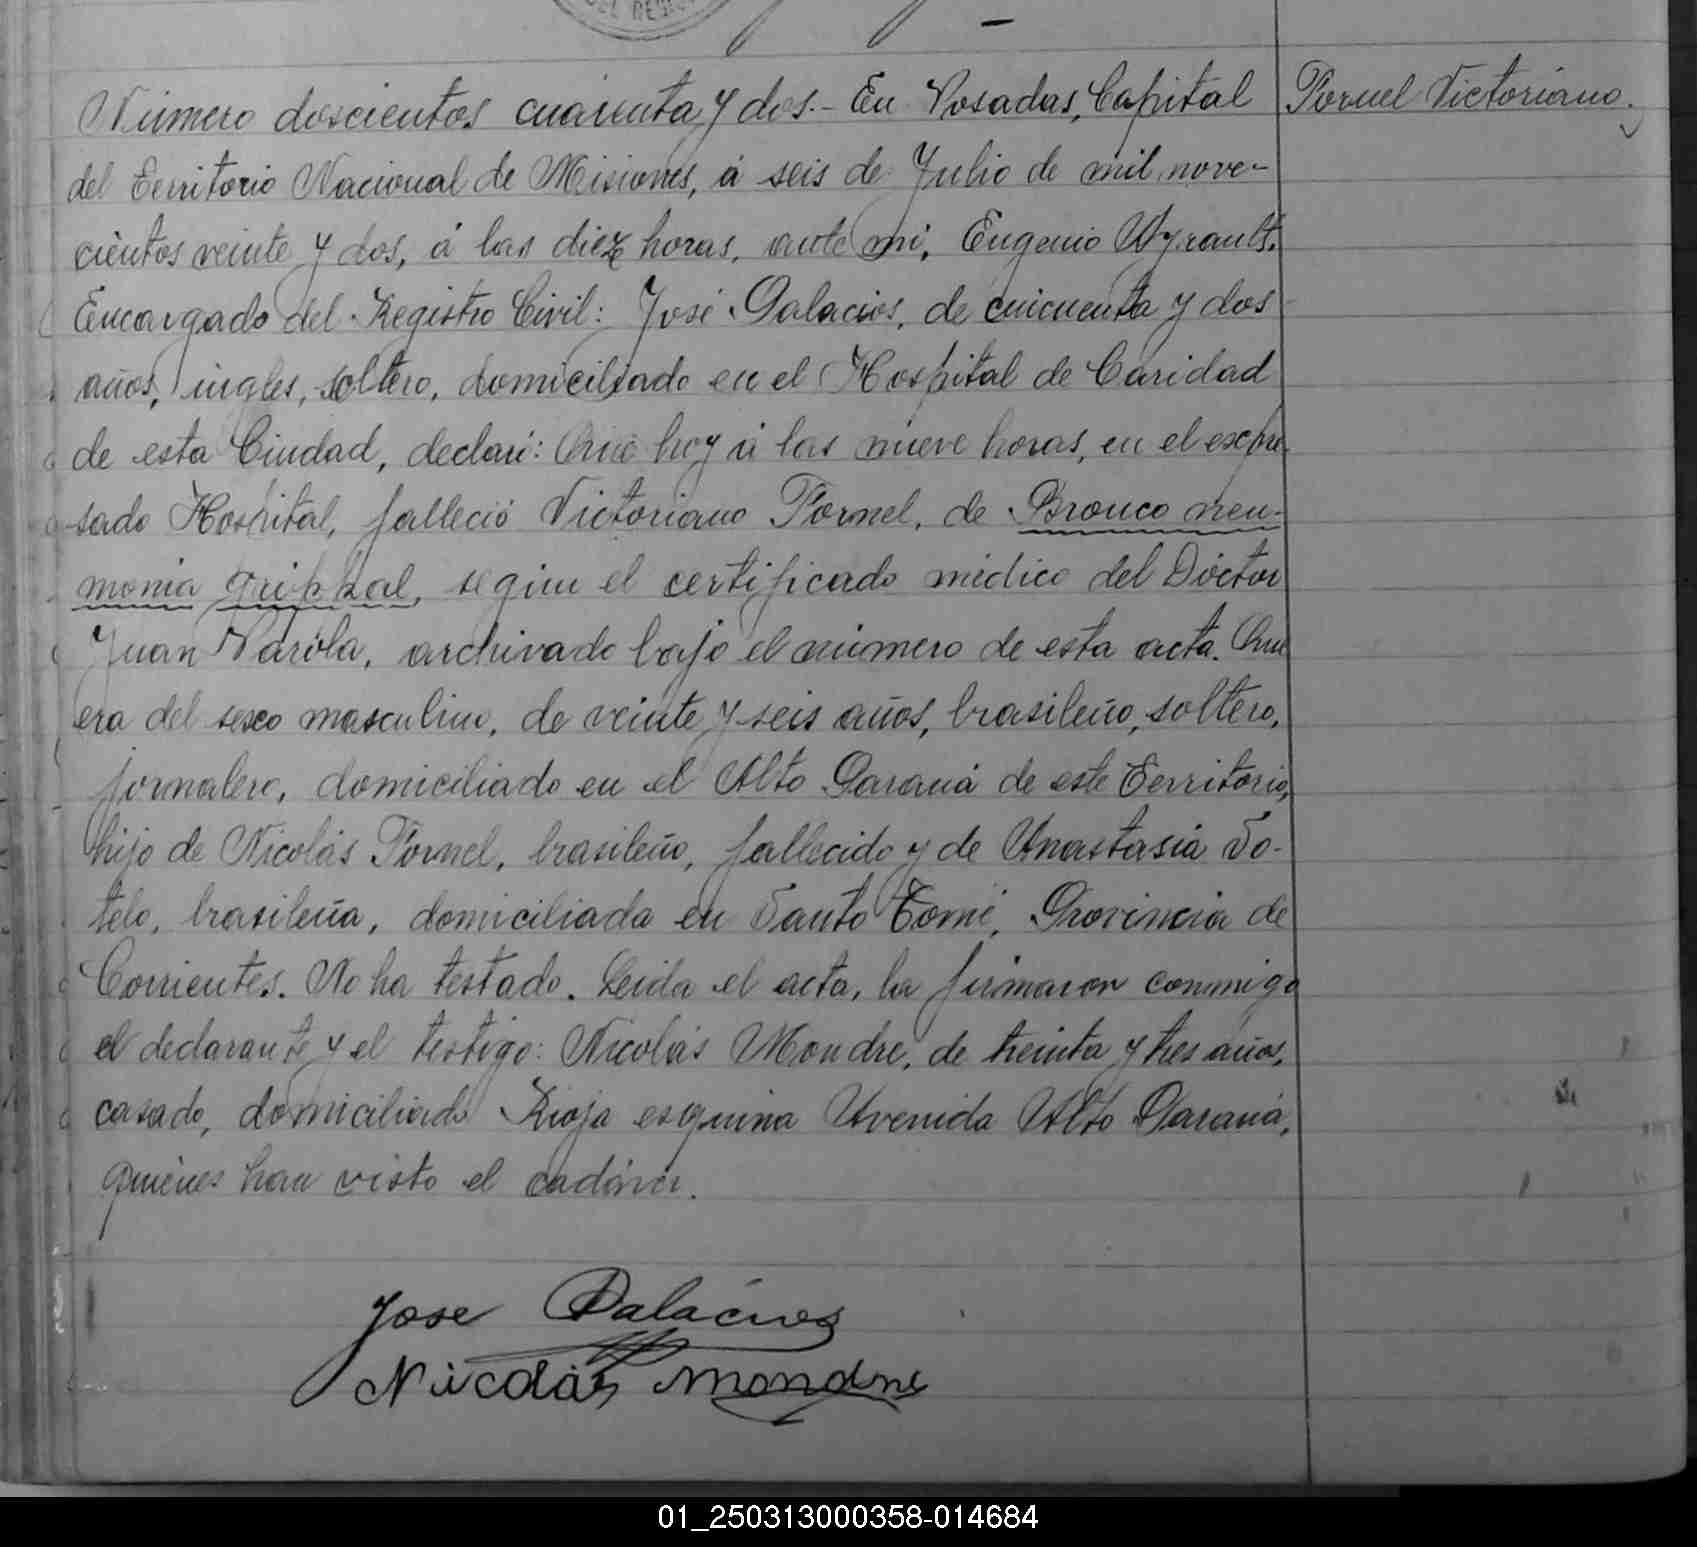 DEL REGIS
Número doscientos cuarenta y dos.- En Posadas, Capital
Pornel Victoriano.
del Territorio Nacional de Misiones, á seis de Julio de mil nove-
cientos veinte y dos, á las diez horas, ante mi, Eugenio
Encargado del Registro Civil: José Palacios, de cincuenta y dos
años, ingles, soltero, domiciliado en el Hospital de Caridad
de esta Ciudad, declaró: Que hoy á las nueve horas, en el expre-
sado Hospital, falleció Victoriano Pornel, de Bronco neu-
monia grippal, según el certificado médico del Doctor
Juan Varola, archivado bajo el número de esta acta. Que
era del sexo masculino, de veinte y seis años, brasileño, soltero,
jornalero, domiciliado en el Alto Paraná de este Territorio,
hijo de Nicolás Pornel, brasileño, fallecido y de Anastasia So-
telo, brasileña, domiciliada en Santo Tomé, Provincia de
Corrientes. No ha testado. Leida el acta, la firmaron conmigo
el declarante y el testigo: Nicolás Mondre, de treinta y tres años,
casado, domiciliado Rioja esquina Avenida Alto Paraná,
quiénes han visto el cadáver.
Jose Palacios
Nicolás Mondre
01_250313000358-014684